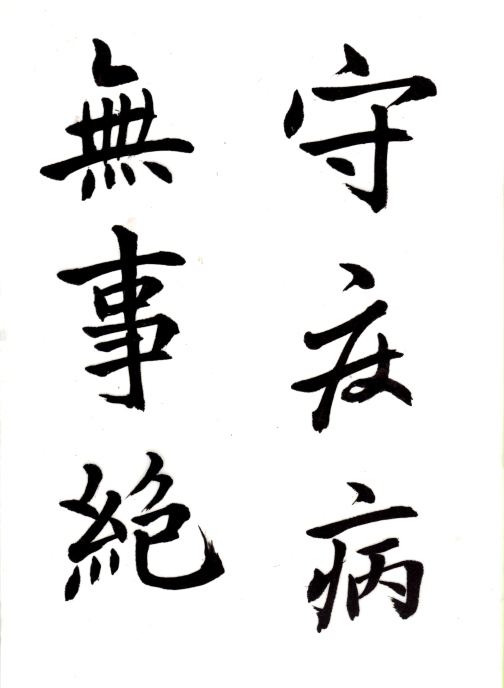 守疫病
無事絶